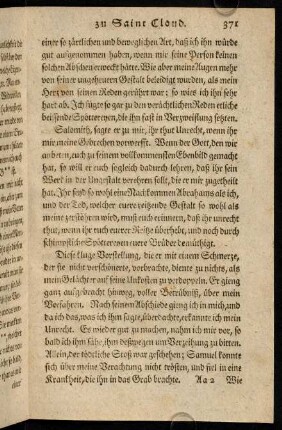 zu Saint Cloud. 371
einer so zärtlichen und beweglichen Art, daß ich ihn würde
gut aufgenommen haben, wenn mir seine Person keinen
solchen Abscheu erweckt hätte. Wie aber meine Augen mehr
von seiner ungeheuern Gestalt beleidigt wurden, als mein
Herz von seinen Reden gerührt war: so wies ich ihn sehr
hart ab. Ich fügte so gar zu den verächtlichen Reden etliche
beissende Spöttereyen, die ihn fast in Verzweiflung setzten.
Salomith, sagte er zu mir, ihr thut Unrecht, wenn ihr
mir meine Gebrechen vorwerfft. Wenn der Gott, den wir
anbeten, euch zu seinem vollkommensten Ebenbild gemacht
hat, so will er euch sogleich dadurch lehren, daß ihr sein
Werk in der Ungestalt verehren sollt, die er mir zugetheilt
hat. Ihr seyd so wohl eine Nachkommen Abrahams als ich,
und der Tod, welcher eure reizende Gestalt so wohl als
meine zerstöhren wird, muß euch erinnern, daß ihr unrecht
thut, wenn ihr euch eurer Reitze überhebt, und noch durch
schimpfliche Spötter eyen eure Brüder demüthigt.
Diese kluge Vorstellung, die er mit einem Schmerze,
der sie nicht verschönerte, vorbrachte, diente zu nichts, als
mein Gelächter auf seine Unkosten zu verdoppeln. Er gieng
ganz aufgebracht hinweg, voller Betrübniß, über mein
Verfahren. Nach seinem Abschiede gieng ich in mich, und
da ich das, was ich ihm sagte, überdachte, erkannte ich mein
Unrecht. Es wieder gut zu machen, nahm ich mir vor, so
bald ich ihn sähe, ihm deßwegen um Verzeihung zu bitten.
Allein, der tödtliche Stoß war geschehen; Samuel konnte
sich über meine Verachtung nicht trösten, und fiel in eine
Krankheit, die ihn in das Grab brachte. Aa 2 Wie